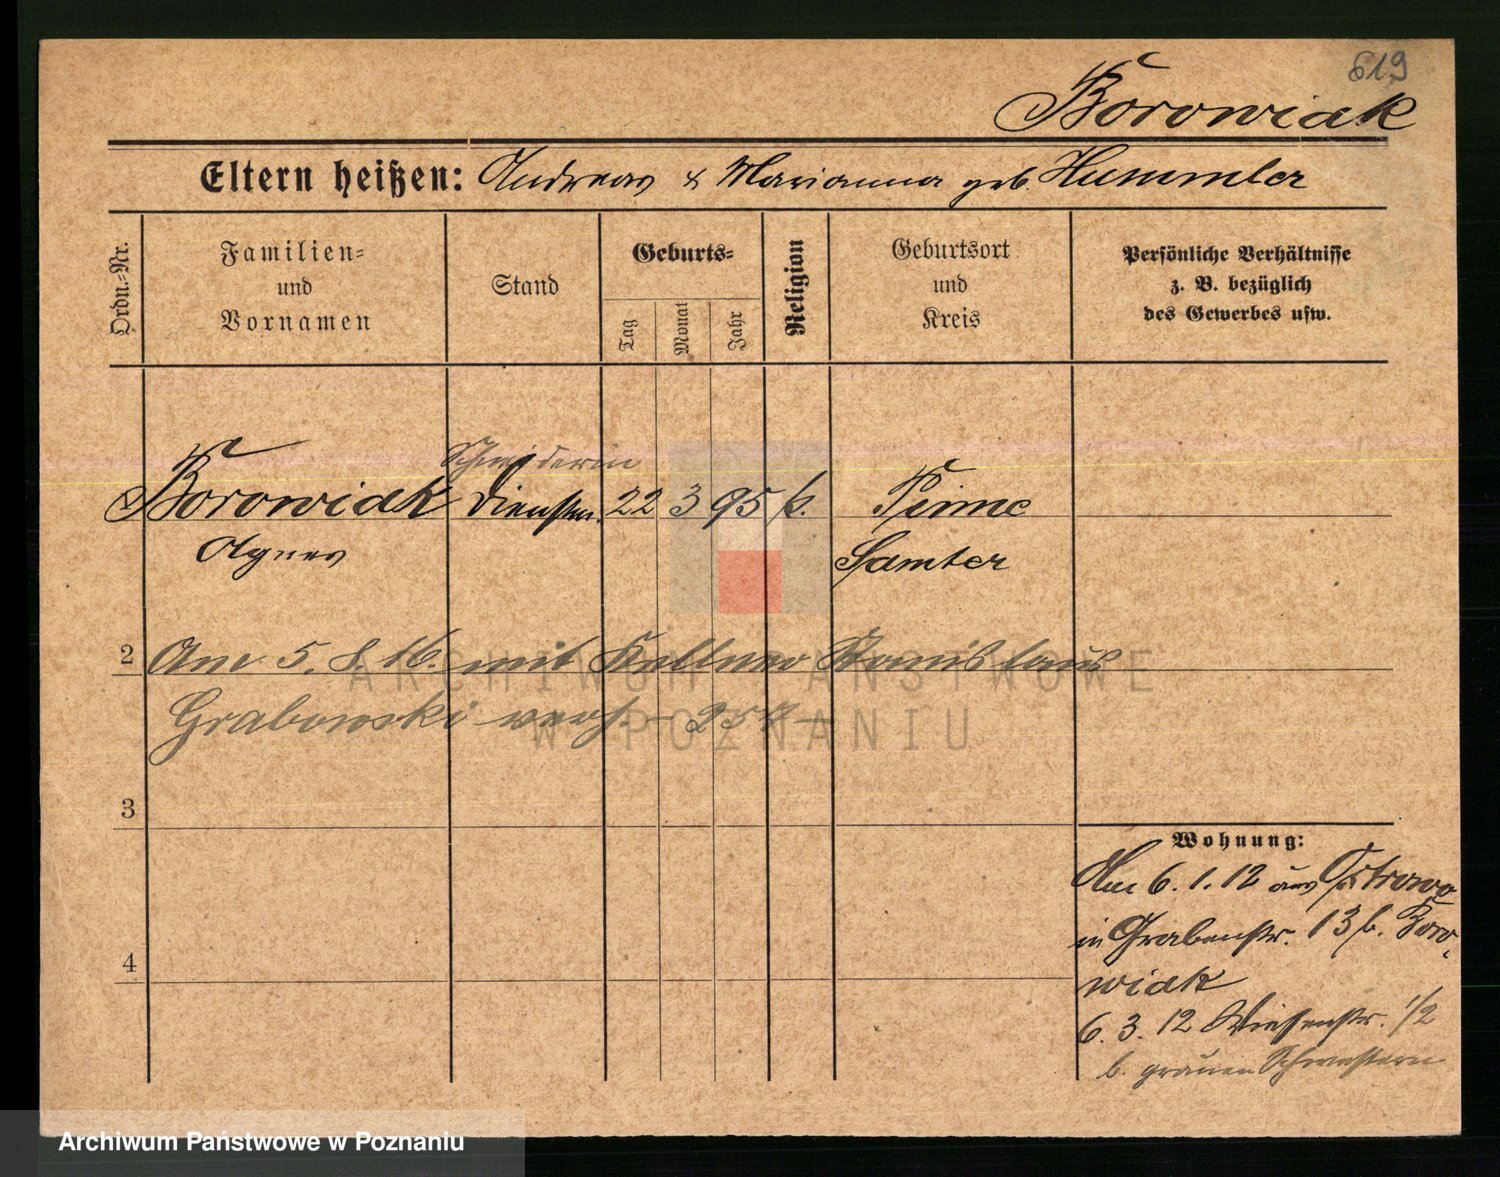 619
Borowiak
Eltern heißen: Andreas & Marianna geb. Hummler
Ordn.-Nr.
Familien-
und
Vornamen
Stand
Geburts-
Tag
Monat
Jahr
Religion
Geburtsort
und
Kreis
Persönliche Verhältnisse
z. B. bezüglich
des Gewerbes usw.
Schneiderin
Borowiak Dienstm. 22 3 95 k. Pinne
Agnes Samter
2 Am 5. 8. 16. mit Kellner Stanislaus
Grabowski verh.
3
4
Wohnung:
Am 6. 1. 12 aus Ostrowo
in Grabenstr. 13 b. Boro-
wiak
6. 3. 12 Wiesenstr. 1/2
b. grauen Schwestern
ARCHIWUM PAŃSTWOWE
W POZNANIU
Archiwum Państwowe w Poznaniu